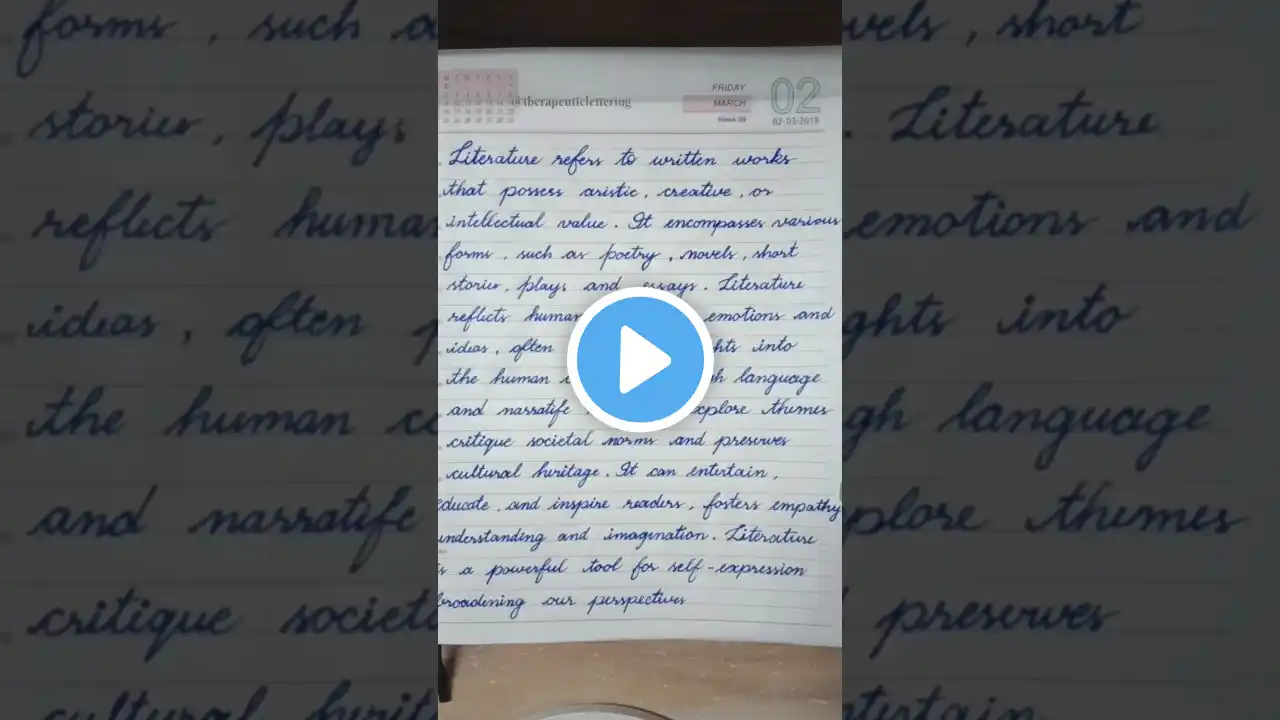 FRIDAY
MARCH
Week 09
02
02-03-2018
@therapeuticlettering
Literature refers to written works
that possess aristic, creative, or
intellectual value. It encompasses various
forms, such as poetry, novels, short
stories, plays and essays. Literature
reflects human emotions and
ideas, often hts into
the human h language
and narratife xplore themes
critique societal norms and preserves
cultural heritage. It can entertain,
educate, and inspire readers, fosters empathy
understanding and imagination. Literature
is a powerful tool for self-expression
broadening our perspectives